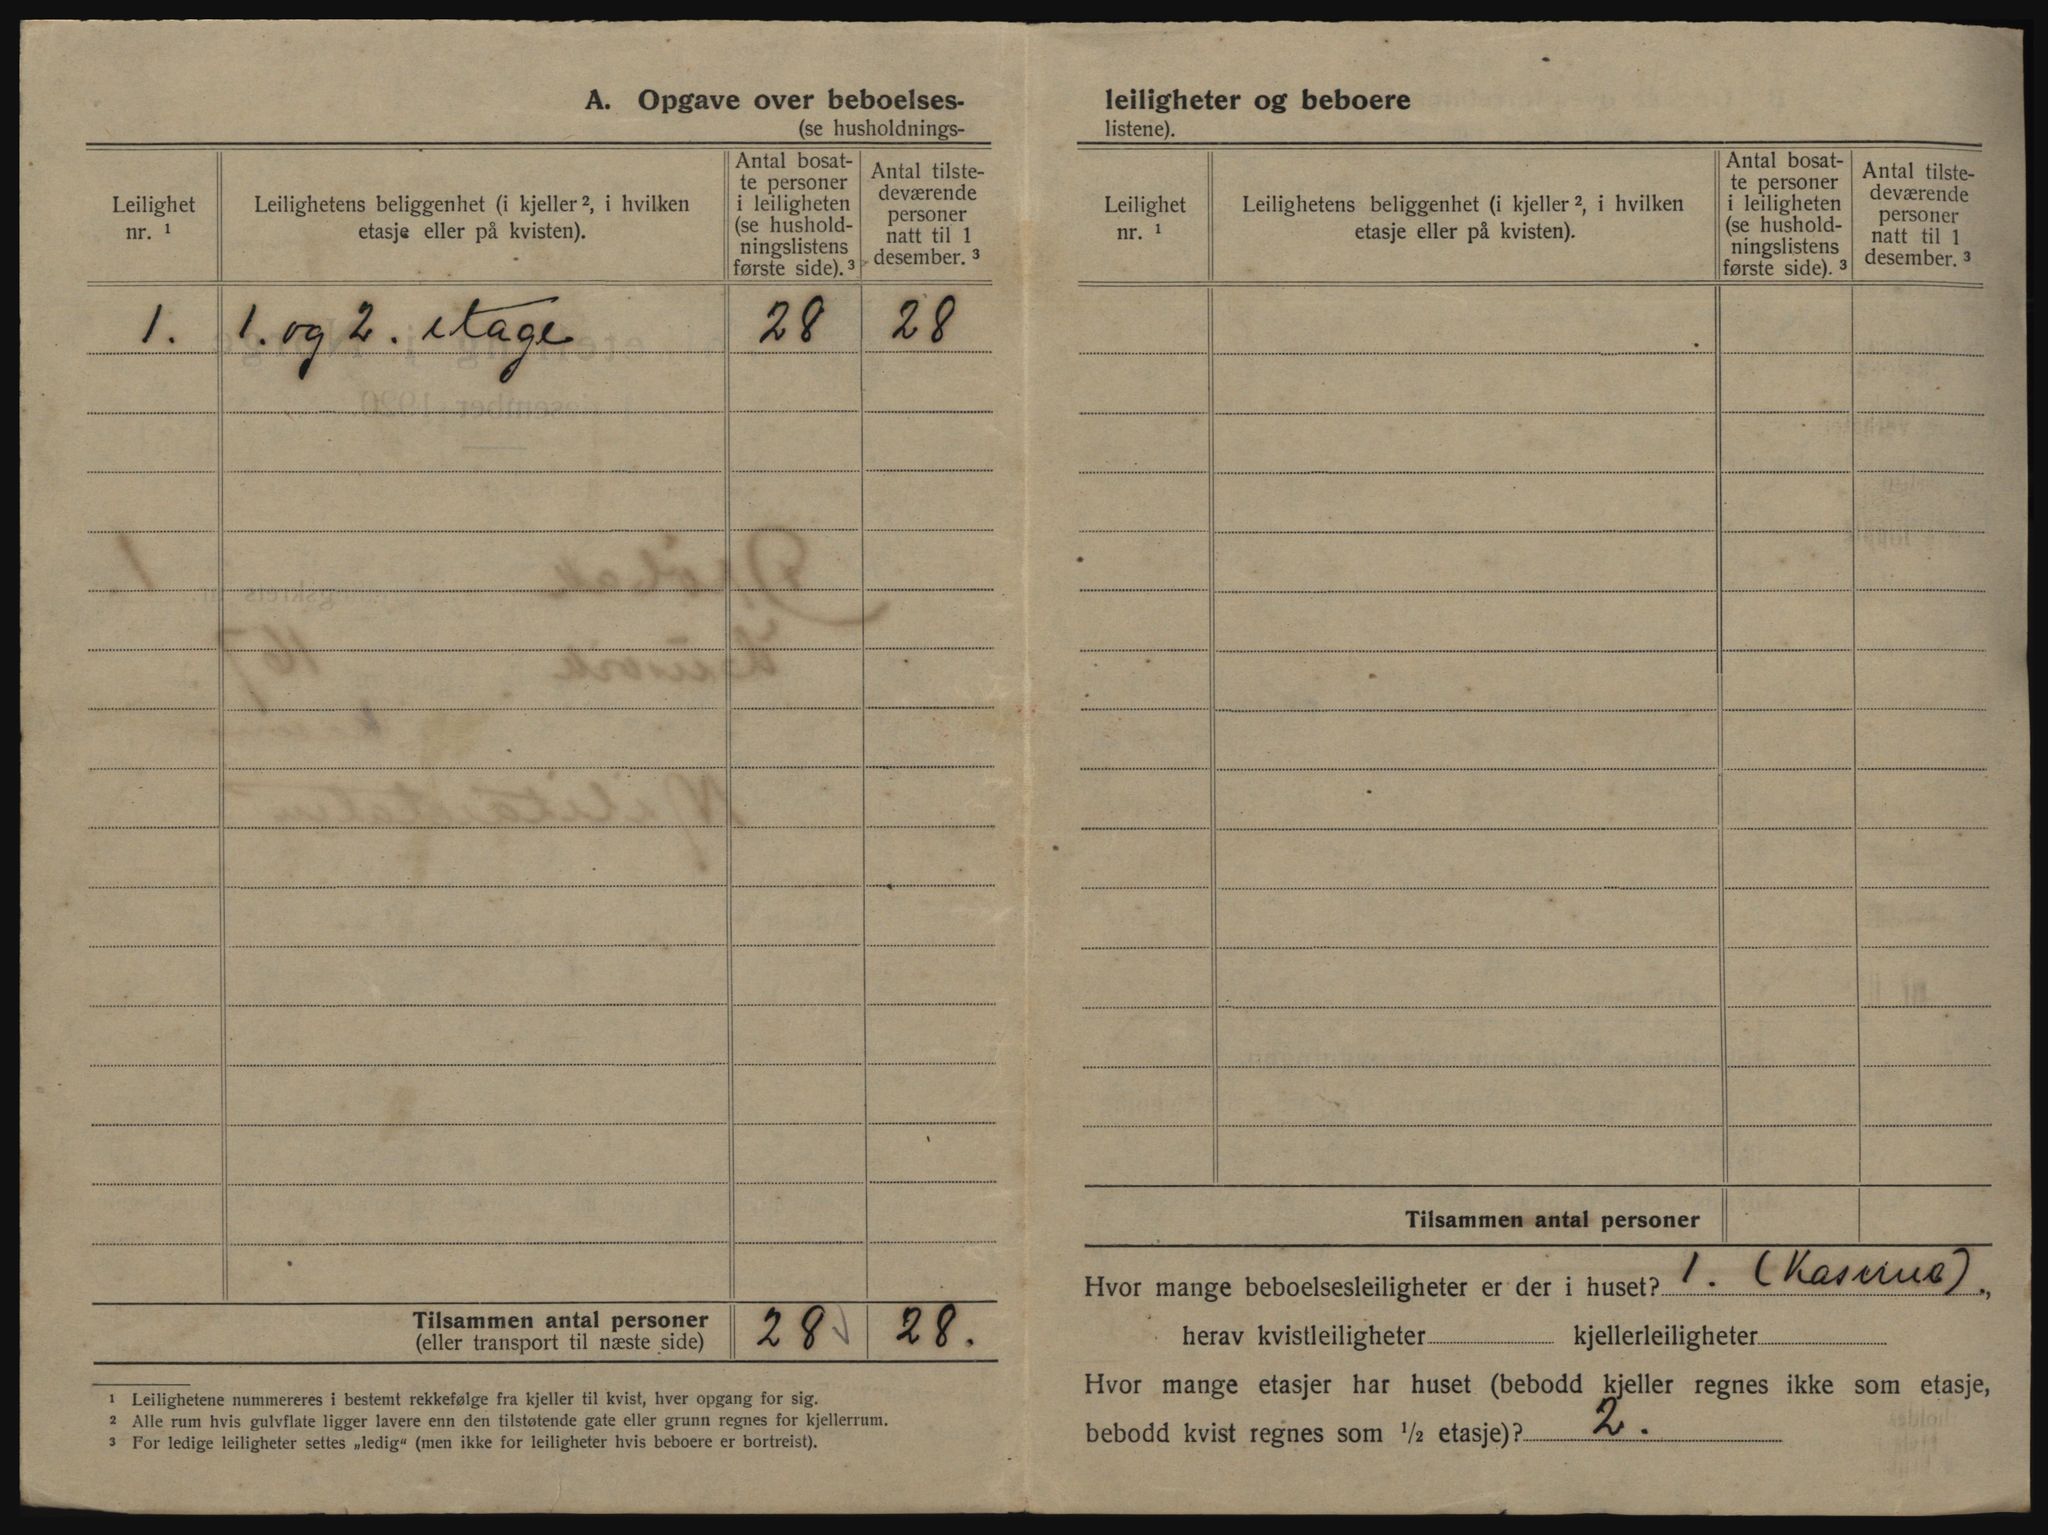 A. Opgave over beboelses-
(se husholdnings-
Leilighet
nr. ¹
Leilighetens beliggenhet (i kjeller ², i hvilken
etasje eller på kvisten).
Antal bosat-
te personer
i leiligheten
(se hushold-
ningslistens
første side). ³
Antal tilste-
deværende
personer
natt til 1
desember. ³
1. 1. og 2. etage 28 28
Tilsammen antal personer
(eller transport til næste side)
28 28.
¹ Leilighetene nummereres i bestemt rekkefølge fra kjeller til kvist, hver opgang for sig.
² Alle rum hvis gulvflate ligger lavere enn den tilstøtende gate eller grunn regnes for kjellerrum.
³ For ledige leiligheter settes „ledig“ (men ikke for leiligheter hvis beboere er bortreist).
leiligheter og beboere
listene).
Leilighet
nr. ¹
Leilighetens beliggenhet (i kjeller ², i hvilken
etasje eller på kvisten).
Antal bosat-
te personer
i leiligheten
(se hushold-
ningslistens
første side). ³
Antal tilste-
deværende
personer
natt til 1
desember. ³
Tilsammen antal personer
Hvor mange beboelsesleiligheter er der i huset? 1. (Kaserne).,
herav kvistleiligheter kjellerleiligheter
Hvor mange etasjer har huset (bebodd kjeller regnes ikke som etasje,
bebodd kvist regnes som ½ etasje)? 2.